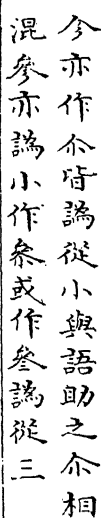 今亦作尒皆譌從小與語助之尒相
混參亦譌小作叅或作叄譌從三